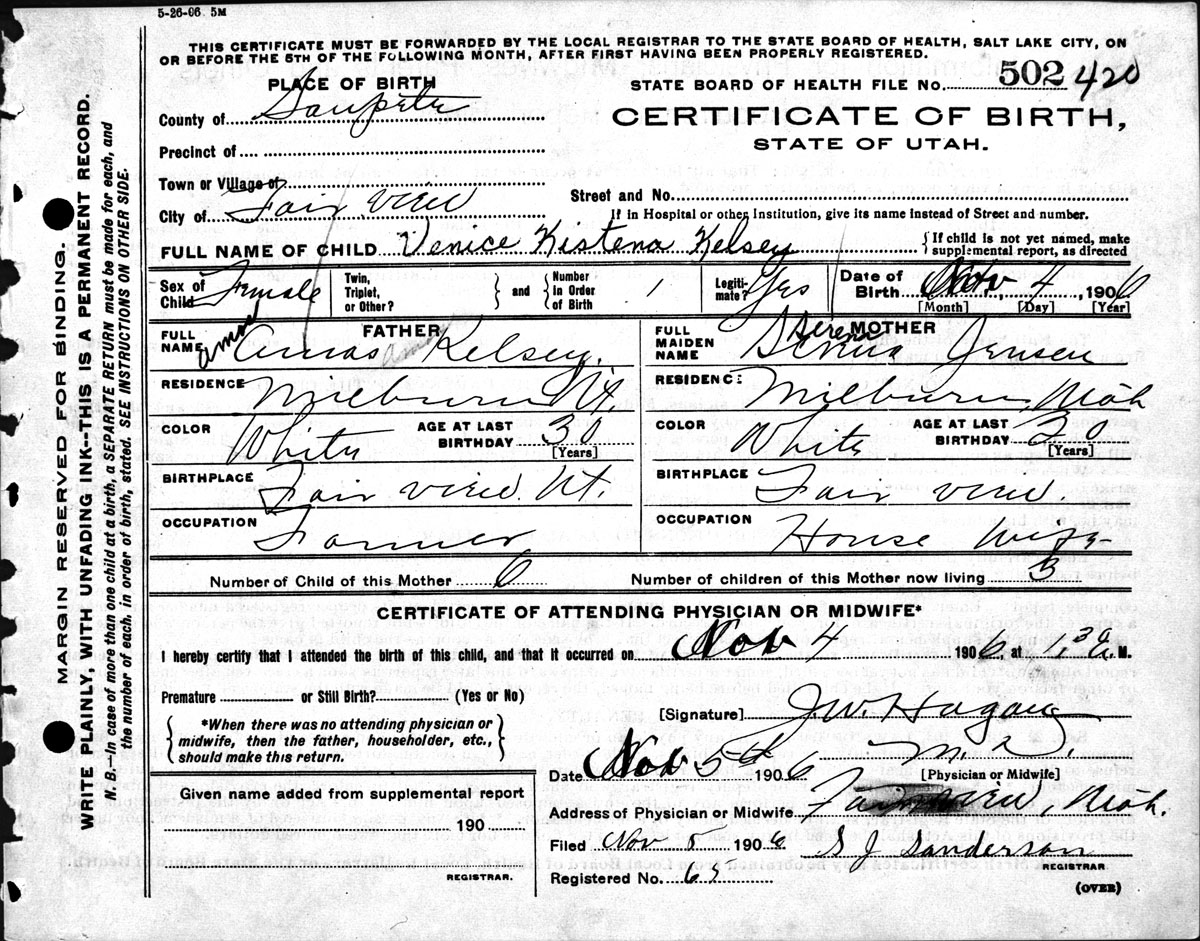 5-26-06 5M
THIS CERTIFICATE MUST BE FORWARDED BY THE LOCAL REGISTRAR TO THE STATE BOARD OF HEALTH, SALT LAKE CITY, ON
OR BEFORE THE 5TH OF THE FOLLOWING MONTH, AFTER FIRST HAVING BEEN PROPERLY REGISTERED.
PLACE OF BIRTH
STATE BOARD OF HEALTH FILE No. 502 420
County of Sanpete
CERTIFICATE OF BIRTH,
STATE OF UTAH.
Precinct of
Town or Village of
Street and No.
City of Fair view
If in Hospital or other Institution, give its name instead of Street and number.
FULL NAME OF CHILD Venice Kistena Kelsey
{If child is not yet named, make supplemental report, as directed
Sex of Child Female
Twin, Triplet, or Other?
and
Number in Order of Birth 1
Legitimate? Yes
Date of Birth Nov 4, 1906
[Month] [Day] [Year]
FATHER
FULL NAME Amos Kelsey.
MOTHER
FULL MAIDEN NAME Serena Jensen
RESIDENCE Milburn Ut.
RESIDENCE Milburn, Utah
COLOR White
AGE AT LAST BIRTHDAY 30
[Years]
COLOR White
AGE AT LAST BIRTHDAY 30
[Years]
BIRTHPLACE Fair view. Ut.
BIRTHPLACE Fair view.
OCCUPATION Farmer
OCCUPATION House wife
Number of Child of this Mother 6
Number of children of this Mother now living 5
CERTIFICATE OF ATTENDING PHYSICIAN OR MIDWIFE*
I hereby certify that I attended the birth of this child, and that it occurred on Nov 4 1906, at 1.30 A. M.
Premature or Still Birth? (Yes or No)
[Signature] J.W. Hagan
M.D.
[Physician or Midwife]
*When there was no attending physician or
midwife, then the father, householder, etc.,
should make this return.
Date Nov 5th 1906
Given name added from supplemental report
190
REGISTRAR.
Address of Physician or Midwife Fairview, Utah.
Filed Nov 5 1906
S J Sanderson
REGISTRAR
Registered No. 65
(OVER)
MARGIN RESERVED FOR BINDING.
WRITE PLAINLY, WITH UNFADING INK--THIS IS A PERMANENT RECORD.
N. B.—In case of more than one child at a birth, a SEPARATE RETURN must be made for each, and
the number of each, in order of birth, stated. SEE INSTRUCTIONS ON OTHER SIDE.